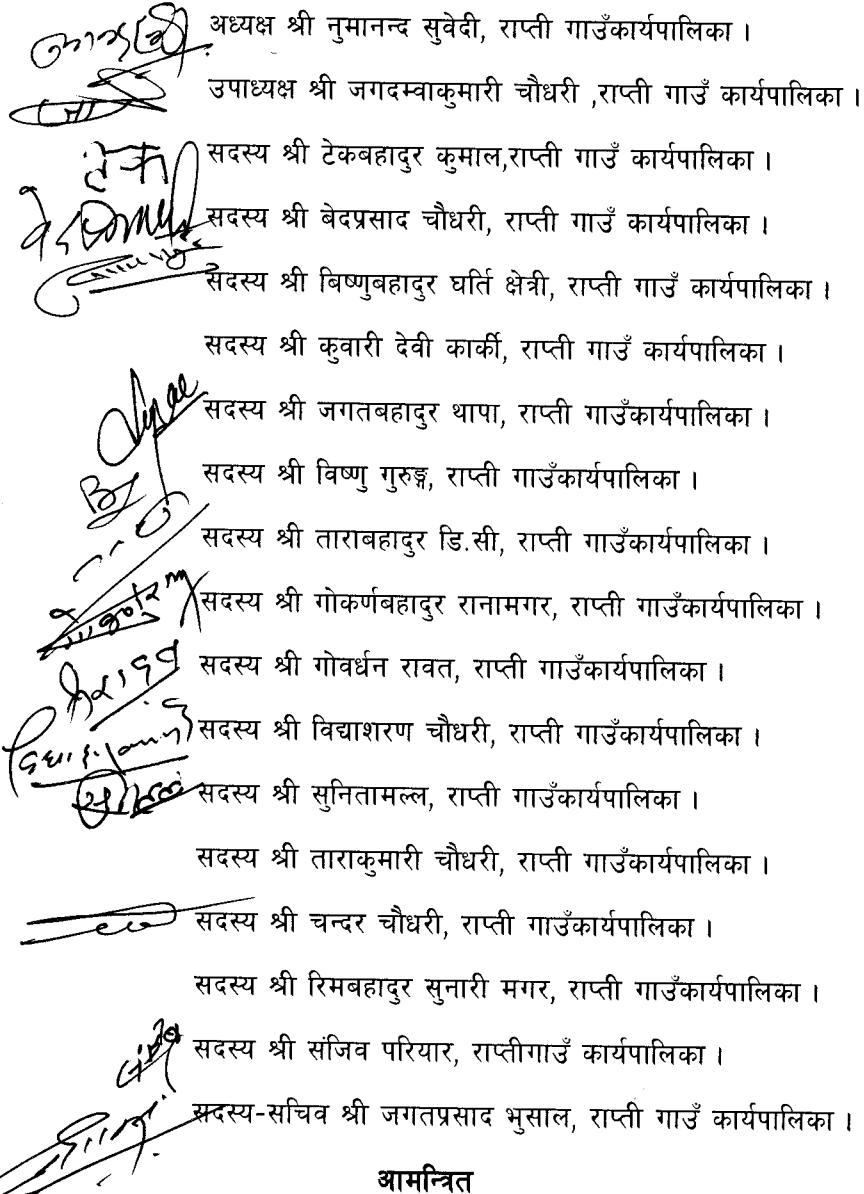 अध्यक्ष श्री नुमानन्द सुवेदी, राप्ती गाउँकार्यपालिका ।
उपाध्यक्ष श्री जगदम्वाकुमारी चौधरी ,राप्ती गाउँ कार्यपालिका ।
टेक सदस्य श्री टेकबहादुर कुमाल,राप्ती गाउँ कार्यपालिका ।
सदस्य श्री बेदप्रसाद चौधरी, राप्ती गाउँ कार्यपालिका ।
सदस्य श्री बिष्णुबहादुर घर्ति क्षेत्री, राप्ती गाउँ कार्यपालिका ।
सदस्य श्री कुवारी देवी कार्की, राप्ती गाउँ कार्यपालिका ।
सदस्य श्री जगतबहादुर थापा, राप्ती गाउँकार्यपालिका ।
सदस्य श्री विष्णु गुरुङ्ग, राप्ती गाउँकार्यपालिका ।
सदस्य श्री ताराबहादुर डि.सी, राप्ती गाउँकार्यपालिका ।
सदस्य श्री गोकर्णबहादुर रानामगर, राप्ती गाउँकार्यपालिका ।
सदस्य श्री गोवर्धन रावत, राप्ती गाउँकार्यपालिका ।
सदस्य श्री विद्याशरण चौधरी, राप्ती गाउँकार्यपालिका ।
सदस्य श्री सुनितामल्ल, राप्ती गाउँकार्यपालिका ।
सदस्य श्री ताराकुमारी चौधरी, राप्ती गाउँकार्यपालिका ।
सदस्य श्री चन्दर चौधरी, राप्ती गाउँकार्यपालिका ।
सदस्य श्री रिमबहादुर सुनारी मगर, राप्ती गाउँकार्यपालिका ।
सदस्य श्री संजिव परियार, राप्तीगाउँ कार्यपालिका ।
सदस्य-सचिव श्री जगतप्रसाद भुसाल, राप्ती गाउँ कार्यपालिका ।
आमन्त्रित